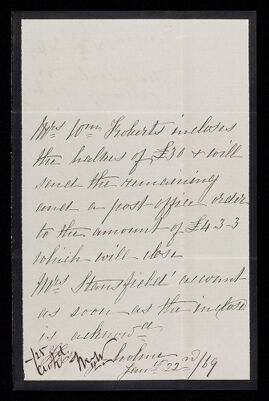 Mrs Wm Roberts incloses
the halves of £30 & will
send the remaining
and a post office order
to the amount of £4-3-3
which will close
Mrs Stansfield' account
as soon as the inclose
is acknowd
1/25
Holme
Jany 22nd/69